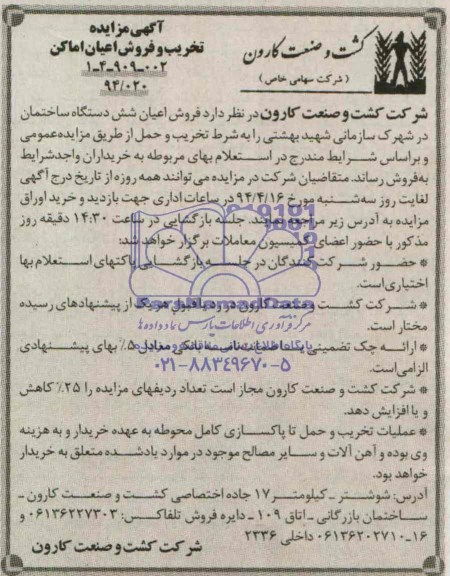 آگهی مزایده
تخریب و فروش اعیان اماکن
۱-۴-۹۰۹-۰۰۲
۹۴/۰۲۰
کشت و صنعت کارون
( شرکت سهامی خاص )
شرکت کشت و صنعت کارون در نظر دارد فروش اعیان شش دستگاه ساختمان
در شهرک سازمانی شهید بهشتی را به شرط تخریب و حمل از طریق مزایده عمومی
و براساس شرایط مندرج در استعلام بهای مربوطه به خریداران واجد شرایط
به فروش رساند. متقاضیان شرکت در مزایده می توانند همه روزه از تاریخ درج آگهی
لغایت روز سه شنبه مورخ ۹۴/۴/۱۶ در ساعات اداری جهت بازدید و خرید اوراق
مزایده به آدرس زیر مراجعه نمایند. جلسه بازگشایی در ساعت ۱۴:۳۰ دقیقه روز
مذکور با حضور اعضای کمیسیون معاملات برگزار خواهد شد:
* حضور شرکت کنندگان در جلسه بازگشایی پاکتهای استعلام بها
اختیاری است.
* شرکت کشت و صنعت کارون در رد یا قبول هر یک از پیشنهادهای رسیده
مختار است.
مرکز فرآوری اطلاعات پارس نماد داده ها
* ارائه چک تضمینی یا ضمانتنامه بانکی معادل ۵٪ بهای پیشنهادی
الزامی است.
۰۲۱-۸۸۳۴۹۶۷۰-۵
* شرکت کشت و صنعت کارون مجاز است تعداد ردیفهای مزایده را ۲۵٪ کاهش
و یا افزایش دهد.
* عملیات تخریب و حمل تا پاکسازی کامل محوطه به عهده خریدار و به هزینه
وی بوده و آهن آلات و سایر مصالح موجود در موارد یادشده متعلق به خریدار
خواهد بود.
آدرس: شوشتر ـ کیلومتر ۱۷ جاده اختصاصی کشت و صنعت کارون ـ
ساختمان بازرگانی ـ اتاق ۱۰۹ ـ دایره فروش تلفاکس: ۰۶۱۳۶۲۲۷۳۰۳ و
۱۶ـ۰۶۱۳۶۲۰۲۷۱۰ داخلی ۲۳۳۶
شرکت کشت و صنعت کارون